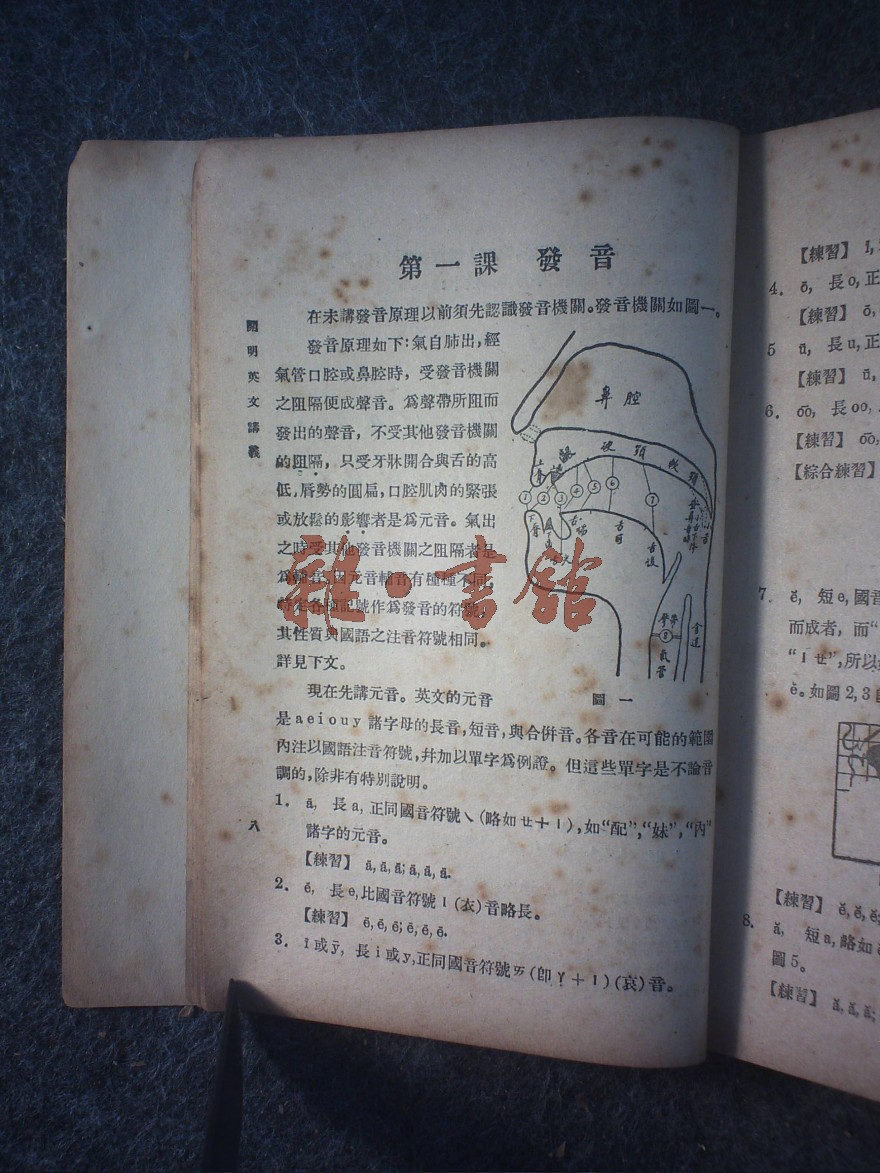 第一課 發音
在未講發音原理以前須先認識發音機關。發音機關如圖一。
開明英文講義
發音原理如下：氣自肺出，經
氣管口腔或鼻腔時，受發音機關
之阻隔便成聲音。爲聲帶所阻而
發出的聲音，不受其他發音機關
的阻隔，只受牙牀開合與舌的高
低，唇勢的圓扁，口腔肌肉的緊張
或放鬆的影響者是爲元音。氣出
之時受其他發音機關之阻隔者是
爲輔音。因元音輔音有種種不同，
特定各種記號作爲發音的符號，
其性質與國語之注音符號相同。
詳見下文。
鼻腔
硬顎
軟顎
①
②
③
④
⑤
⑥
⑦
舌後
聲帶
⑧
氣管
食道
圖一
現在先講元音。英文的元音
是 a e i o u y 諸字母的長音，短音，與合併音。各音在可能的範圍
內注以國語注音符號，幷加以單字爲例證。但這些單字是不論音
調的，除非有特別說明。
1. ā, 長 a, 正同國音符號ㄟ(略如ㄝ+ㄧ)，如“配”，“妹”，“內”
諸字的元音。
【練習】 ā, ā, ā; ā, ā, ā.
2. ē, 長 e, 比國音符號ㄧ(衣)音略長。
【練習】 ē, ē, ē; ē, ē, ē.
3. ī 或 ȳ, 長 i 或 y, 正同國音符號ㄞ(卽ㄚ+ㄧ)(哀)音。
八
雜·書館
【練習】 ī,
4. ō, 長 o, 正
【練習】 ō,
5 ū, 長 u, 正
【練習】 ū,
6. o͞o, 長 oo,
【練習】 o͞o,
【綜合練習】
7. ĕ, 短 e, 國音
而成者，而“
“ㄧㄝ”，所以
ĕ。如圖 2, 3
【練習】 ĕ, ĕ, ĕ;
8. ă, 短 a, 略如
圖 5。
【練習】 ă, ă, ă;